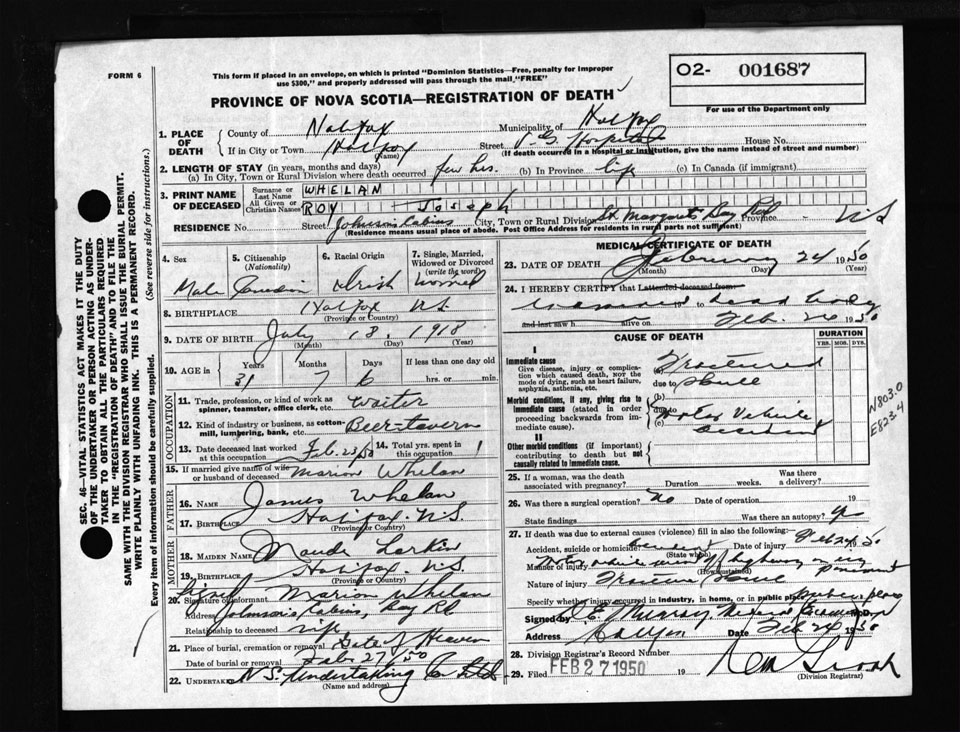 FORM 6
This form if placed in an envelope, on which is printed "Dominion Statistics—Free, penalty for improper
use $300," and properly addressed will pass through the mail "FREE"
O2- 001687
For use of the Department only
PROVINCE OF NOVA SCOTIA—REGISTRATION OF DEATH
1. PLACE OF DEATH
County of Halifax Municipality of Halifax
If in City or Town Halifax (Name) Street V.G. Hospital House No.
(If death occurred in a hospital or institution, give the name instead of street and number)
2. LENGTH OF STAY (in years, months and days)
(a) In City, Town or Rural Division where death occurred few hrs. (b) In Province life (c) In Canada (if immigrant)
3. PRINT NAME OF DECEASED
Surname or Last Name WHELAN
All Given or Christian Names ROY Joseph
RESIDENCE No. Street Johnsons Cabins City, Town or Rural Division St. Margarets Bay Rd Province N S
(Residence means usual place of abode. Post Office Address for residents in rural parts not sufficient)
4. Sex Male
5. Citizenship (Nationality) Canadian
6. Racial Origin Irish
7. Single, Married, Widowed or Divorced (write the word)
8. BIRTHPLACE Halifax N.S. (Province or Country)
9. DATE OF BIRTH July (Month) 18, (Day) 1918 (Year)
10. AGE in Years 31 Months 7 Days 6 If less than one day old hrs. or min.
OCCUPATION
11. Trade, profession, or kind of work as spinner, teamster, office clerk, etc. Waiter
12. Kind of industry or business, as cotton mill, lumbering, bank, etc. Beer-tavern
13. Date deceased last worked at this occupation Feb. 23/50 14. Total yrs. spent in this occupation 1
15. If married give name of wife or husband of deceased Marion Whelan
FATHER
16. NAME James Whelan
17. BIRTHPLACE Halifax N.S. (Province or Country)
MOTHER
18. MAIDEN NAME Maude Larkin
19. BIRTHPLACE Halifax N.S. (Province or Country)
20. Signature of informant Signed Marion Whelan
Address Johnsons Cabins, Bay Rd
Relationship to deceased wife
21. Place of burial, cremation or removal Gate of Heaven
Date of burial or removal Feb. 27/50
22. UNDERTAKER N.S. Undertaking Co Ltd
(Name and address)
MEDICAL CERTIFICATE OF DEATH
23. DATE OF DEATH February 24 1950
(Month) (Day) (Year)
24. I HEREBY CERTIFY that I attended deceased from
dead body
and last saw h alive on Feb. 24 1950
CAUSE OF DEATH
DURATION
YRS. MOS. DYS.
I
Immediate cause
Give disease, injury or complication which caused death, nor the mode of dying, such as heart failure, asphyxia, asthenia, etc.
(a) Fractured
due to Skull
Morbid conditions, if any, giving rise to immediate cause (stated in order proceeding backwards from immediate cause).
(b)
due to Motor Vehicle
(c) accident
II
Other morbid conditions (if important) contributing to death but not causally related to immediate cause.
N803.0
E823-4
25. If a woman, was the death associated with pregnancy? Duration weeks. Was there a delivery?
26. Was there a surgical operation? No Date of operation 19
State findings Was there an autopsy? yes
27. If death was due to external causes (violence) fill in also the following:
Accident, suicide or homicide (State which) Date of injury Feb 24/50
Manner of injury (How sustained)
Nature of injury Fracture Skull
Specify whether injury occurred in industry, in home, or in public place
Signed by Murray Medical Examiner
Address Date Feb 24 1950
28. Division Registrar's Record Number
29. Filed FEB 27 1950 19
(Division Registrar)
SEC. 46—VITAL STATISTICS ACT MAKES IT THE DUTY
OF THE UNDERTAKER OR PERSON ACTING AS UNDER-
TAKER TO OBTAIN ALL THE PARTICULARS REQUIRED
IN THE "REGISTRATION OF DEATH" AND TO FILE THE
SAME WITH THE DIVISION REGISTRAR WHO SHALL ISSUE THE BURIAL PERMIT.
WRITE PLAINLY WITH UNFADING INK. THIS IS A PERMANENT RECORD.
Every item of information should be carefully supplied. (See reverse side for instructions.)